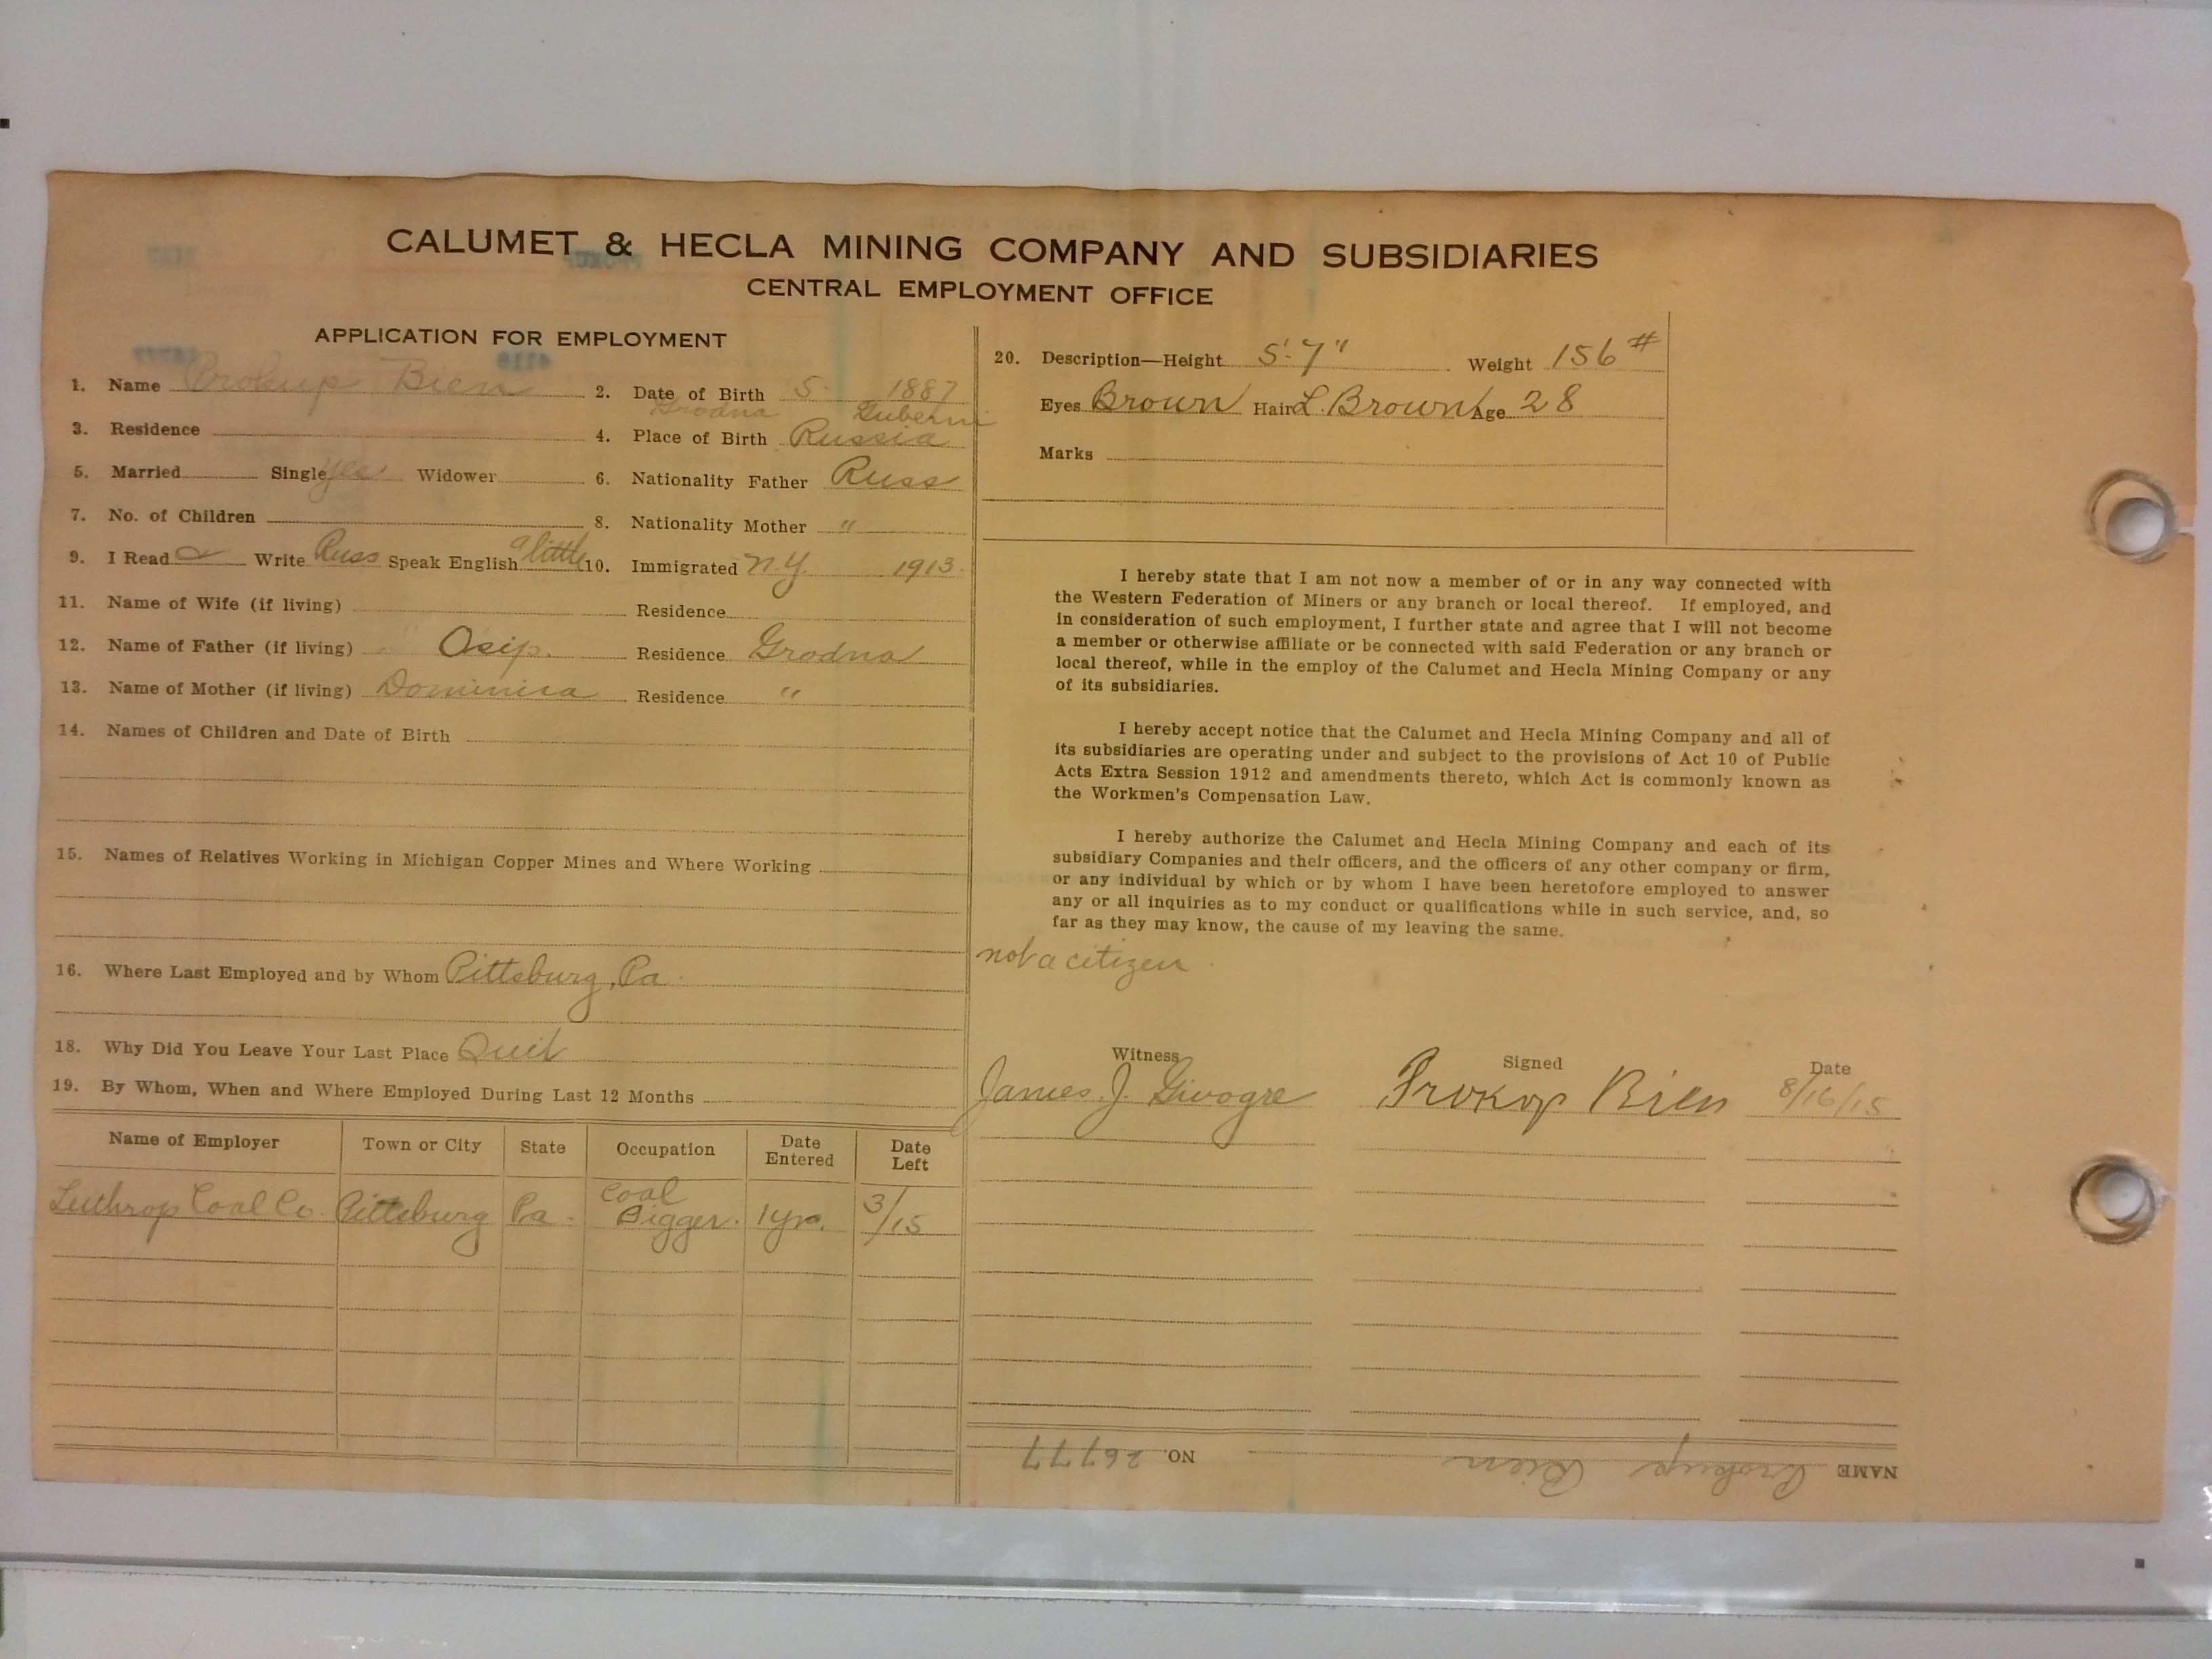 CALUMET & HECLA MINING COMPANY AND SUBSIDIARIES
CENTRAL EMPLOYMENT OFFICE
APPLICATION FOR EMPLOYMENT
1. Name Prokup Bien 2. Date of Birth 5 - 1887
Grodna Guberni
3. Residence 4. Place of Birth Russia
5. Married Single yes Widower 6. Nationality Father Russ
7. No. of Children 8. Nationality Mother "
9. I Read & Write Russ Speak English a little 10. Immigrated N.Y. 1913.
11. Name of Wife (if living) Residence
12. Name of Father (if living) Osip. Residence Grodno
13. Name of Mother (if living) Dominica Residence "
14. Names of Children and Date of Birth
15. Names of Relatives Working in Michigan Copper Mines and Where Working
16. Where Last Employed and by Whom Pittsburg, Pa.
18. Why Did You Leave Your Last Place Quit
19. By Whom, When and Where Employed During Last 12 Months
Name of Employer Town or City State Occupation Date Entered Date Left
Luthrop Coal Co. Pittsburg Pa. Coal Digger. 1 yr. 3/15
20. Description—Height 5'-7" Weight 156 #
Eyes Brown Hair L. Brown Age 28
Marks
I hereby state that I am not now a member of or in any way connected with
the Western Federation of Miners or any branch or local thereof. If employed, and
in consideration of such employment, I further state and agree that I will not become
a member or otherwise affiliate or be connected with said Federation or any branch or
local thereof, while in the employ of the Calumet and Hecla Mining Company or any
of its subsidiaries.
I hereby accept notice that the Calumet and Hecla Mining Company and all of
its subsidiaries are operating under and subject to the provisions of Act 10 of Public
Acts Extra Session 1912 and amendments thereto, which Act is commonly known as
the Workmen's Compensation Law.
I hereby authorize the Calumet and Hecla Mining Company and each of its
subsidiary Companies and their officers, and the officers of any other company or firm,
or any individual by which or by whom I have been heretofore employed to answer
any or all inquiries as to my conduct or qualifications while in such service, and, so
far as they may know, the cause of my leaving the same.
not a citizen.
Witness Signed Date
James. J. Givogre Prokop Bien 8/16/15
NAME Prokup Bien NO. 26777